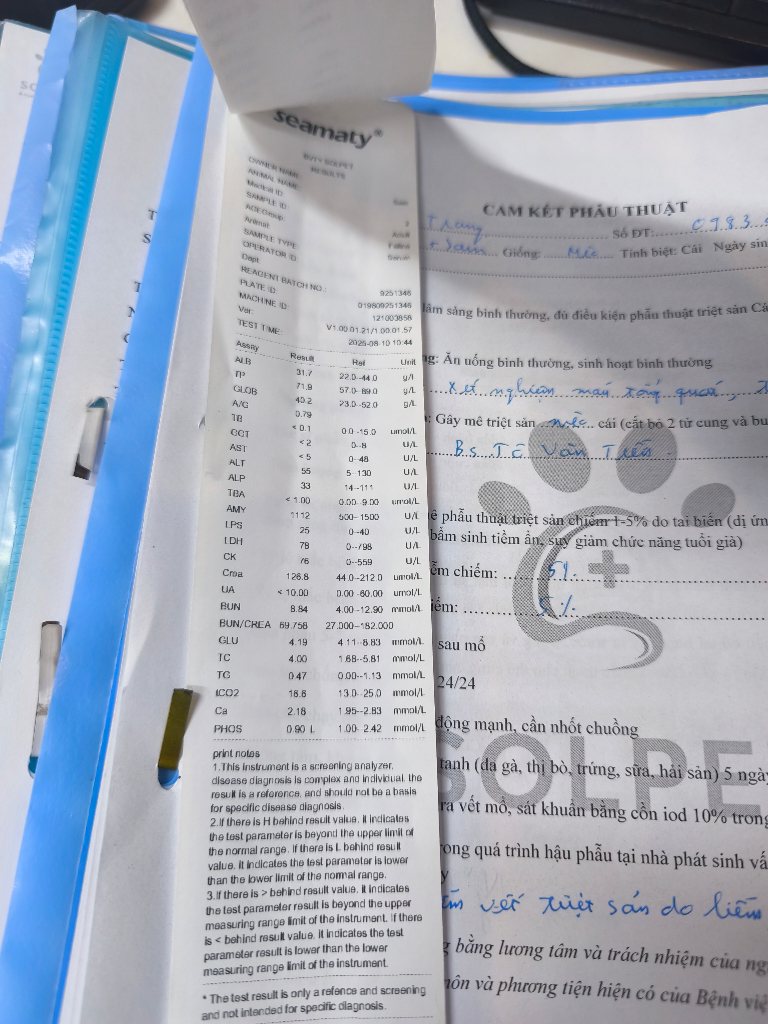 seamaty®
DVTY SOLPET
RESULTS
OWNER NAME:
ANIMAL NAME:
Medical ID:
SAMPLE ID:
AGE/Group:
Animal:
SAMPLE TYPE
OPERATOR ID:
Dept
REAGENT BATCH NO.: 9251346
PLATE ID: 019809251346
MACHINE ID: 121003858
Ver: V1.00.01.21/1.00.01.57
TEST TIME: 2025-08-10 10:44
Assay Result Ref Unit
ALB 31.7 22.0--44.0 g/l
TP 71.9 57.0--89.0 g/L
GLOB 40.2 23.0--52.0 g/L
A/G 0.79
TB < 0.1 0.0--15.0 umol/L
GGT < 2 0--8 U/L
AST < 5 0--48 U/L
ALT 55 5--130 U/L
ALP 33 14--111 U/L
TBA < 1.00 0.00--9.00 umol/L
AMY 1112 500--1500 U/L
LPS 25 0--40 U/L
LDH 78 0--798 U/L
CK 76 0--559 U/L
Crea 126.8 44.0--212.0 umol/L
UA < 10.00 0.00--60.00 umol/L
BUN 8.84 4.00--12.90 mmol/L
BUN/CREA 69.756 27.000--182.000
GLU 4.19 4.11--8.83 mmol/L
TC 4.00 1.68--5.81 mmol/L
TG 0.47 0.00--1.13 mmol/L
tCO2 16.6 13.0--25.0 mmol/L
Ca 2.18 1.95--2.83 mmol/L
PHOS 0.90 L 1.00--2.42 mmol/L
print notes
1.This instrument is a screening analyzer,
disease diagnosis is complex and individual, the
result is a reference, and should not be a basis
for specific disease diagnosis.
2.If there is H behind result value, it indicates
the test parameter is beyond the upper limit of
the normal range. If there is L behind result
value. It indicates the test parameter is lower
than the lower limit of the normal range.
3.If there is > behind result value, it indicates
the test parameter result is beyond the upper
measuring range limit of the instrument. If there
is < behind result value. it indicates the test
parameter result is lower than the lower
measuring range limit of the instrument.
* The test result is only a refence and screening
and not intended for specific diagnosis.
CAM KẾT PHẪU THUẬT
Trang Số ĐT: 0983
Sam Giống: Mèo Tính biệt: Cái Ngày sin
lâm sàng bình thường, đủ điều kiện phẫu thuật triệt sản Cá
ng: Ăn uống bình thường, sinh hoạt bình thường
xét nghiệm máu tổng quát,
: Gây mê triệt sản mèo cái (cắt bỏ 2 tử cung và bu
B.s Tô Văn Tiến
ê phẫu thuật triệt sản chiếm 1-5% do tai biến (dị ứn
bẩm sinh tiềm ẩn, suy giảm chức năng tuổi già)
ểm chiếm: 5%
iểm: 5%
sau mổ
24/24
động mạnh, cần nhốt chuồng
tanh (da gà, thị bò, trứng, sữa, hải sản) 5 ngà
SOLPE
ra vết mổ, sát khuẩn bằng cồn iod 10% trong
rong quá trình hậu phẫu tại nhà phát sinh vấ
vết triệt sản do liếm
g bằng lương tâm và trách nhiệm của ng
môn và phương tiện hiện có của Bệnh việ